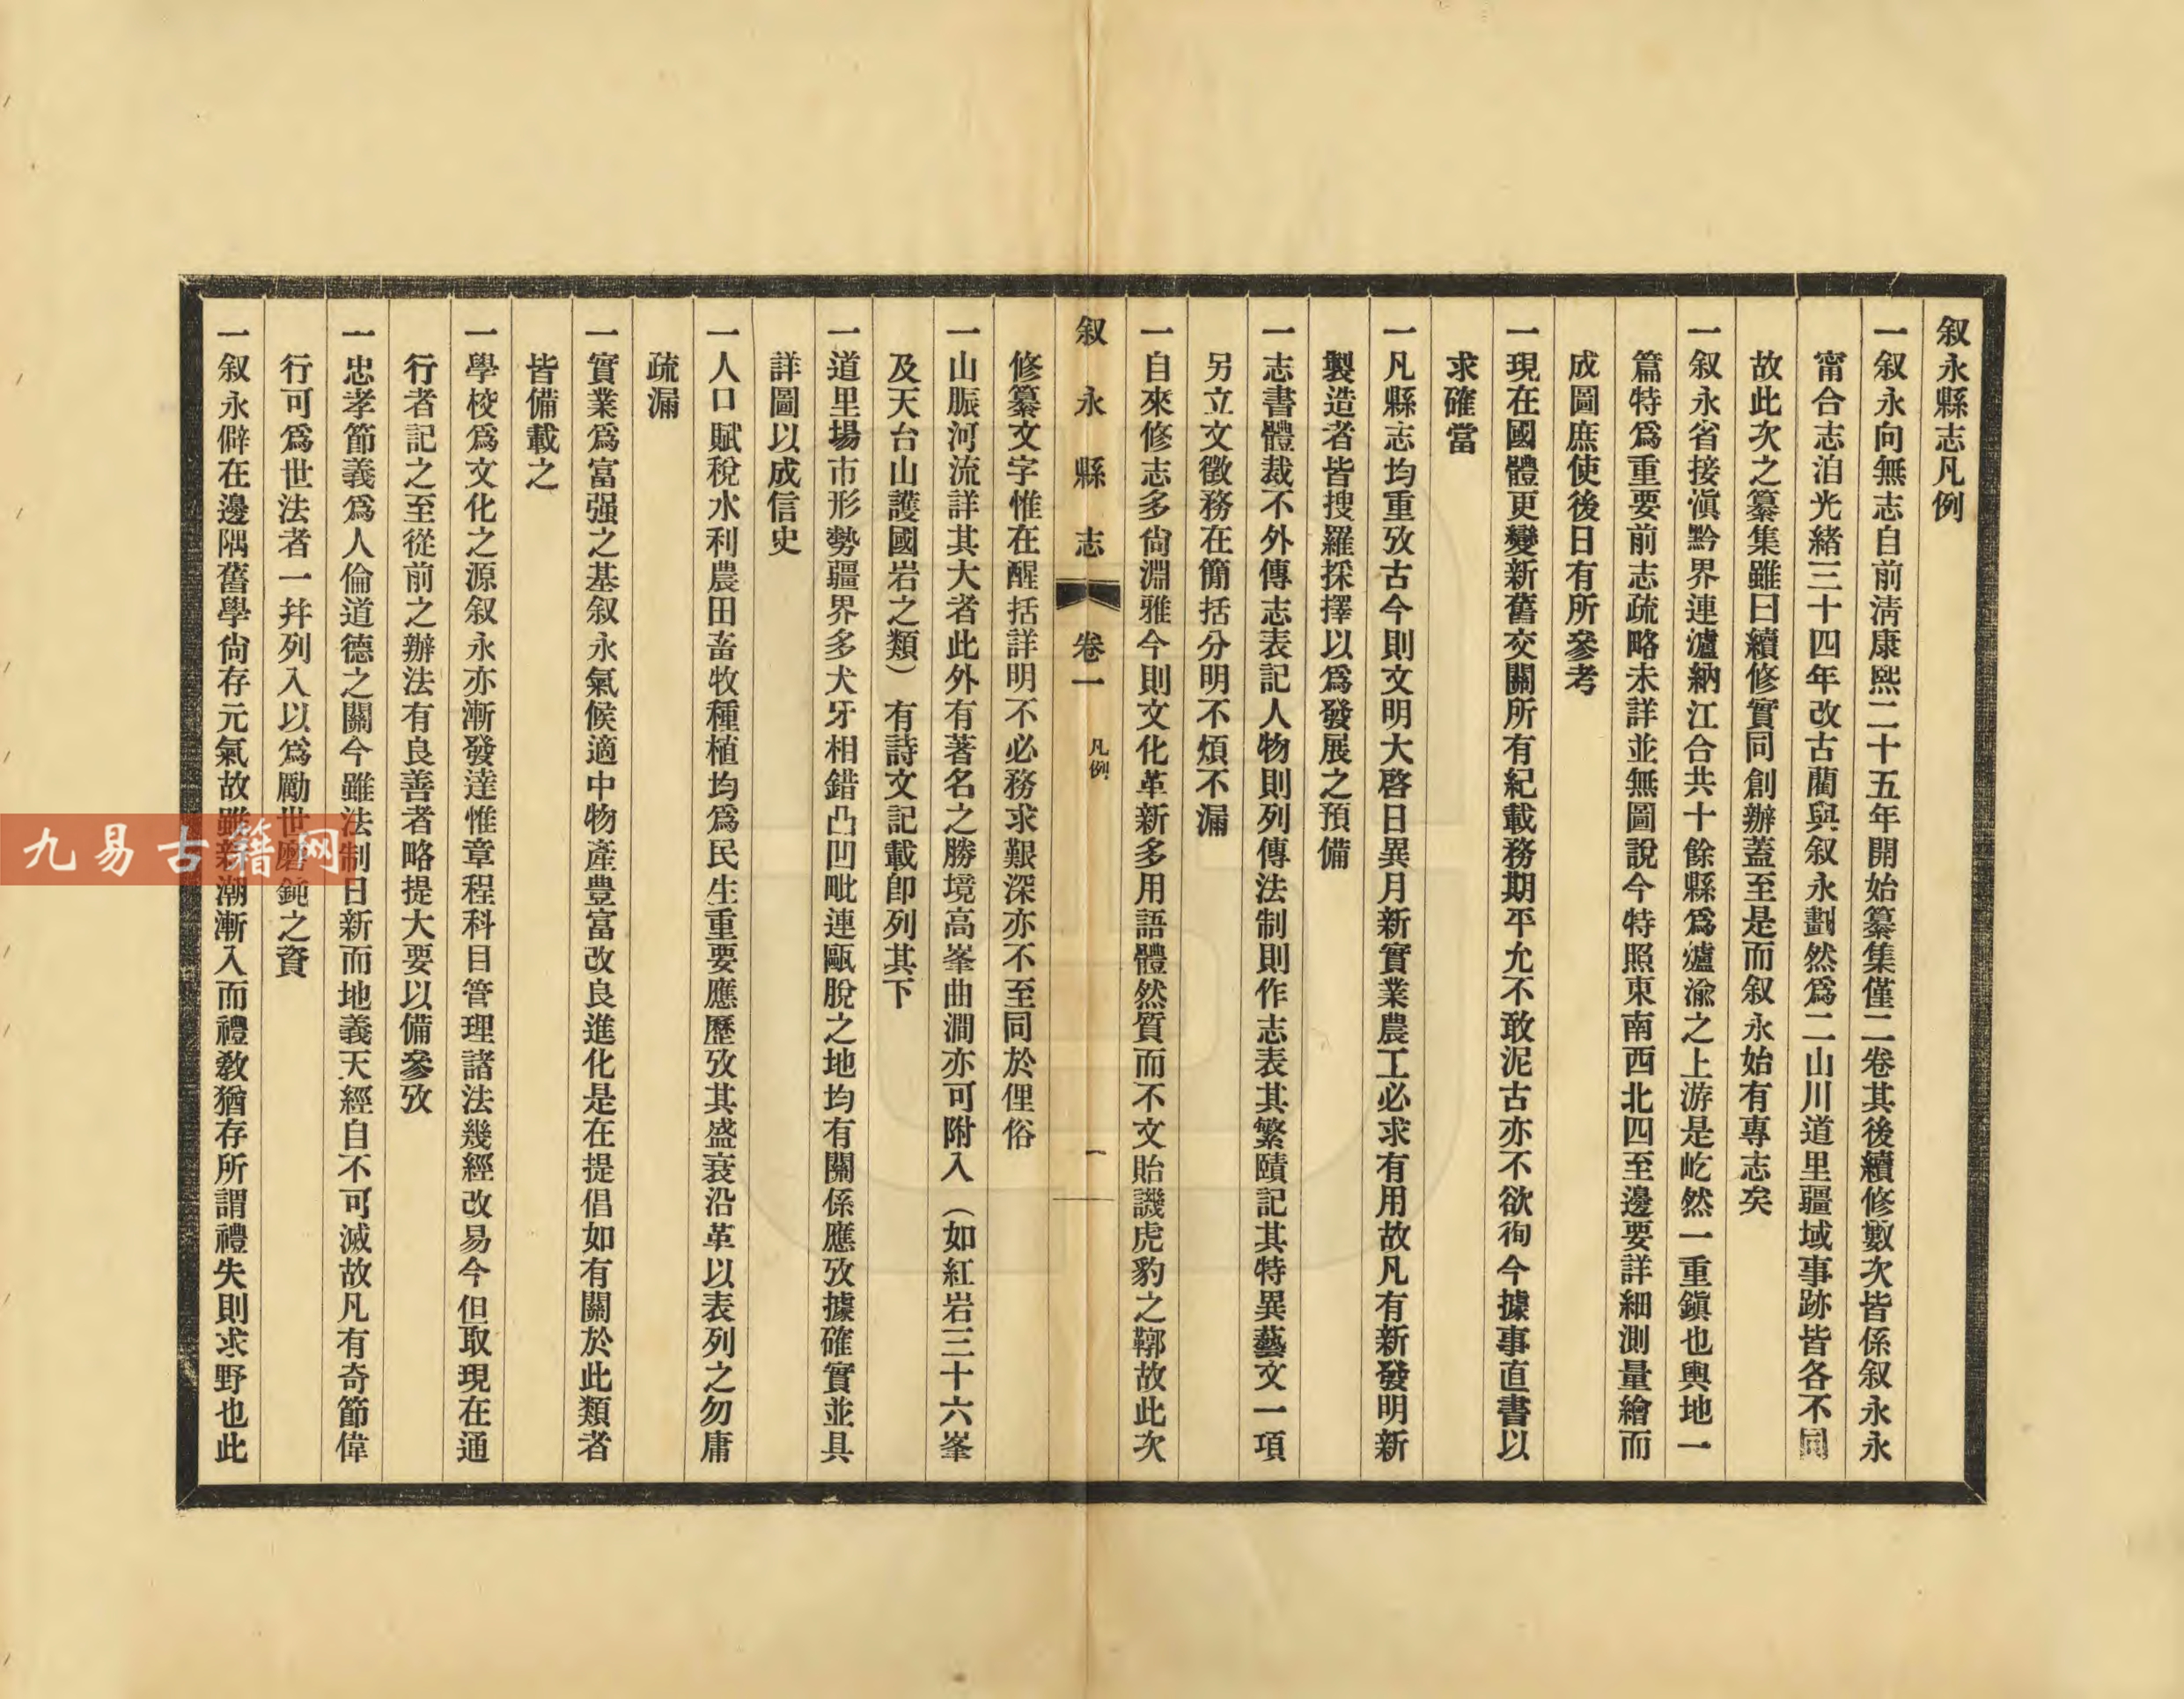 叙永縣志凡例
一叙永向無志自前淸康熙二十五年開始纂集僅二卷其後續修數次皆係叙永永
甯合志洎光緒三十四年改古藺與叙永劃然爲二山川道里疆域事跡皆各不同
故此次之纂集雖曰續修實同創辦蓋至是而叙永始有專志矣
一叙永省接滇黔界連瀘納江合共十餘縣爲瀘渝之上游是屹然一重鎭也輿地一
篇特爲重要前志疏略未詳並無圖說今特照東南西北四至邊要詳細測量繪而
成圖庶使後日有所參考
一現在國體更變新舊交關所有紀載務期平允不敢泥古亦不欲徇今據事直書以
求確當
一凡縣志均重攷古今則文明大啓日異月新實業農工必求有用故凡有新發明新
製造者皆搜羅採擇以爲發展之預備
一志書體裁不外傳志表記人物則列傳法制則作志表其繁賾記其特異藝文一項
另立文徵務在簡括分明不煩不漏
一自來修志多尙淵雅今則文化革新多用語體然質而不文貽譏虎豹之鞹故此次
叙永縣志 卷一 凡例 一
修纂文字惟在醒括詳明不必務求艱深亦不至同於俚俗
一山脈河流詳其大者此外有著名之勝境高峯曲澗亦可附入（如紅岩三十六峯
及天台山護國岩之類）有詩文記載卽列其下
一道里場市形勢疆界多犬牙相錯凸凹毗連甌脫之地均有關係應攷據確實並具
詳圖以成信史
一人口賦稅水利農田畜牧種植均爲民生重要應歷攷其盛衰沿革以表列之勿庸
疏漏
一實業爲富强之基叙永氣候適中物產豊富改良進化是在提倡如有關於此類者
皆備載之
一學校爲文化之源叙永亦漸發達惟章程科目管理諸法幾經改易今但取現在通
行者記之至從前之辦法有良善者略提大要以備參攷
一忠孝節義爲人倫道德之關今雖法制日新而地義天經自不可滅故凡有奇節偉
行可爲世法者一幷列入以爲勵世磨鈍之資
一叙永僻在邊隅舊學尙存元氣故雖新潮漸入而禮敎猶存所謂禮失則求野也此
九易古籍网